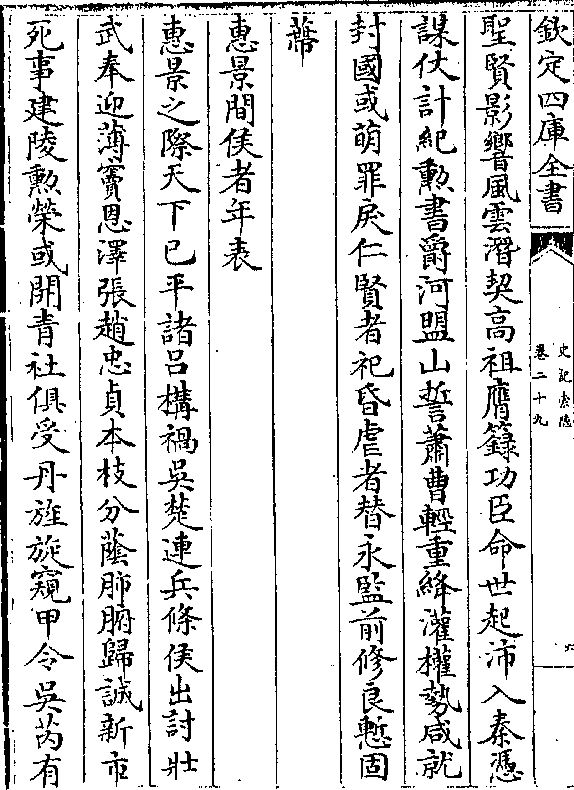 欽定四庫全書
史記索隱
卷二十九
聖賢影響風雲潛契高祖膺籙功臣命世起沛入秦憑
謀仗計紀勲書爵河盟山誓蕭曹輕重絳灌權勢咸就
封國或萌罪戾仁賢者祀昏虐者替永監前修良慙固
蔕
惠景間侯者年表
惠景之際天下已平諸吕構禍吳楚連兵條侯出討壯
武奉迎薄竇恩澤張趙忠貞本枝分蔭肺腑歸誠新市
死事建陵勲榮或開青社俱受丹旌旋窺甲令吳芮有